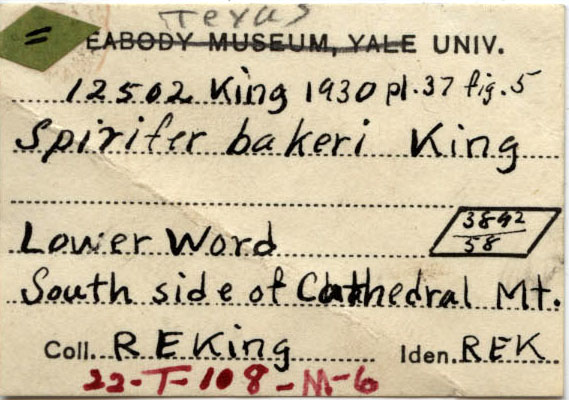 Texas
=
EABODY MUSEUM, YALE UNIV.
12502 King 1930 pl.37 fig.5
Spirifer bakeri King
Lower Word
3892
58
South side of Cathedral Mt.
Coll. R E King Iden. REK
22-T-108-M-6